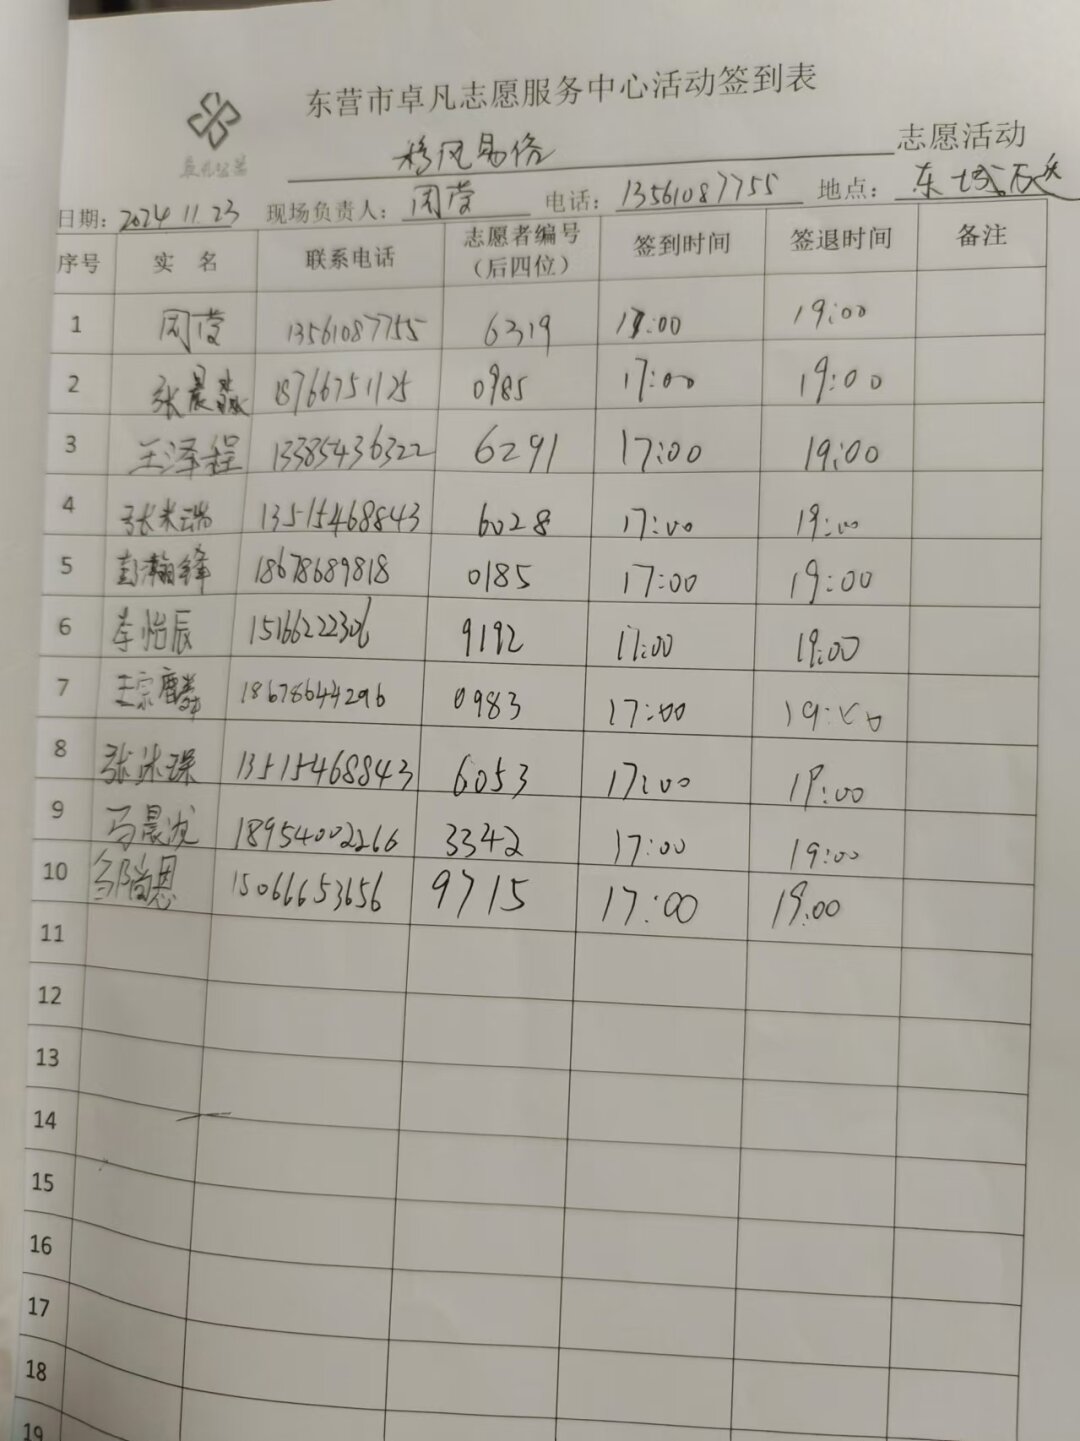 东营市卓凡志愿服务中心活动签到表
卓凡公益
移风易俗 志愿活动
日期：2024 11.23 现场负责人：周莹 电话：13561087755 地点：东城
序号 实 名 联系电话 志愿者编号（后四位） 签到时间 签退时间 备注
1 周莹 13561087755 6319 17:00 19:00
2 张晨淼 18766751125 0985 17:00 19:00
3 王泽程 13385436322 6291 17:00 19:00
4 张米瑞 13515468843 6028 17:00 19:00
5 彭瀚锋 18678689818 0185 17:00 19:00
6 李怡辰 15166222306 9192 17:00 19:00
7 王宗麟 18678644296 0983 17:00 19:00
8 张沐琛 13515468843 6053 17:00 19:00
9 马晨 18954002266 3342 17:00 19:00
10 邹尚恩 15066653656 9715 17:00 19:00
11
12
13
14
15
16
17
18
19